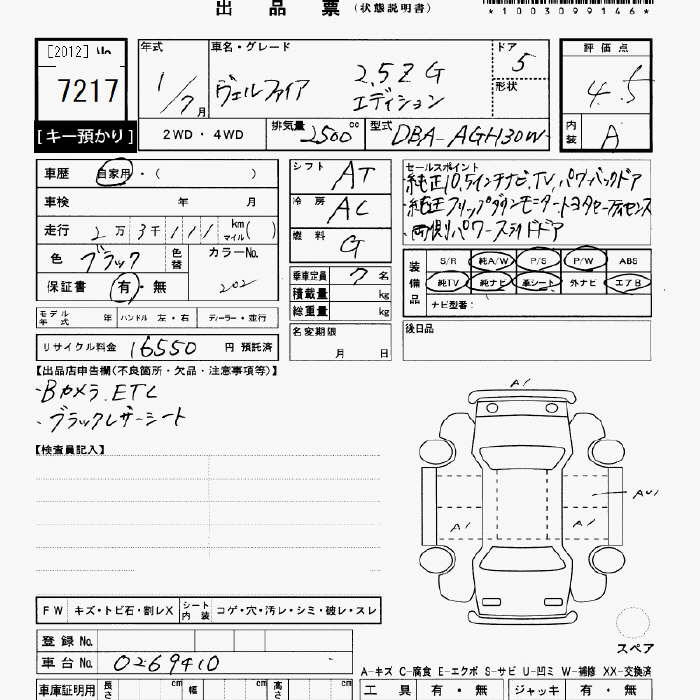 出 品 票 (状態説明書)
*1003099146*
[2012] No
7217
[キー預かり]
年式
1/7 月
車名・グレード
ヴェルファイア 2.5Z G
エディション
ドア
5
形状
評 価 点
4.5
内装 A
2WD・4WD
排気量 2500 cc
型式 DBA-AGH30W
車歴 自家用・( )
車検 年 月
走行 2万 3千 111 km マイル( )
色 ブラック 色替 カラーNo.
202
保証書 有・無
モデル年式 年 ハンドル 左・右 ディーラー・並行
リサイクル料金 16550 円 預託済
シフト AT
冷房 AC
燃料 G
乗車定員 7 名
積載量 kg
総重量 kg
名変期限
月 日
セールスポイント
・純正10.5インチナビ.TV,パワーバックドア
・純正フリップダウンモニター、トヨタセーフティセンス
・両側パワースライドドア
装備品
S/R 純A/W P/S P/W ABS
純TV 純ナビ 革シート 外ナビ エアB
ナビ型番:
後日品
【出品店申告欄(不良箇所・欠品・注意事項等)】
・Bカメラ.ETC
・ブラックレザーシート
【検査員記入】
A1
AU1
A1 A1
スペア
FW キズ・トビ石・割レX シート内装 コゲ・穴・汚レ・シミ・破レ・スレ
登録 No.
車台 No. 0269410
A-キズ C-腐食 E-エクボ S-サビ U-凹ミ W-補修 XX-交換済
車庫証明用 長さ cm 幅 cm 高さ cm
工具 有・無 ジャッキ 有・無